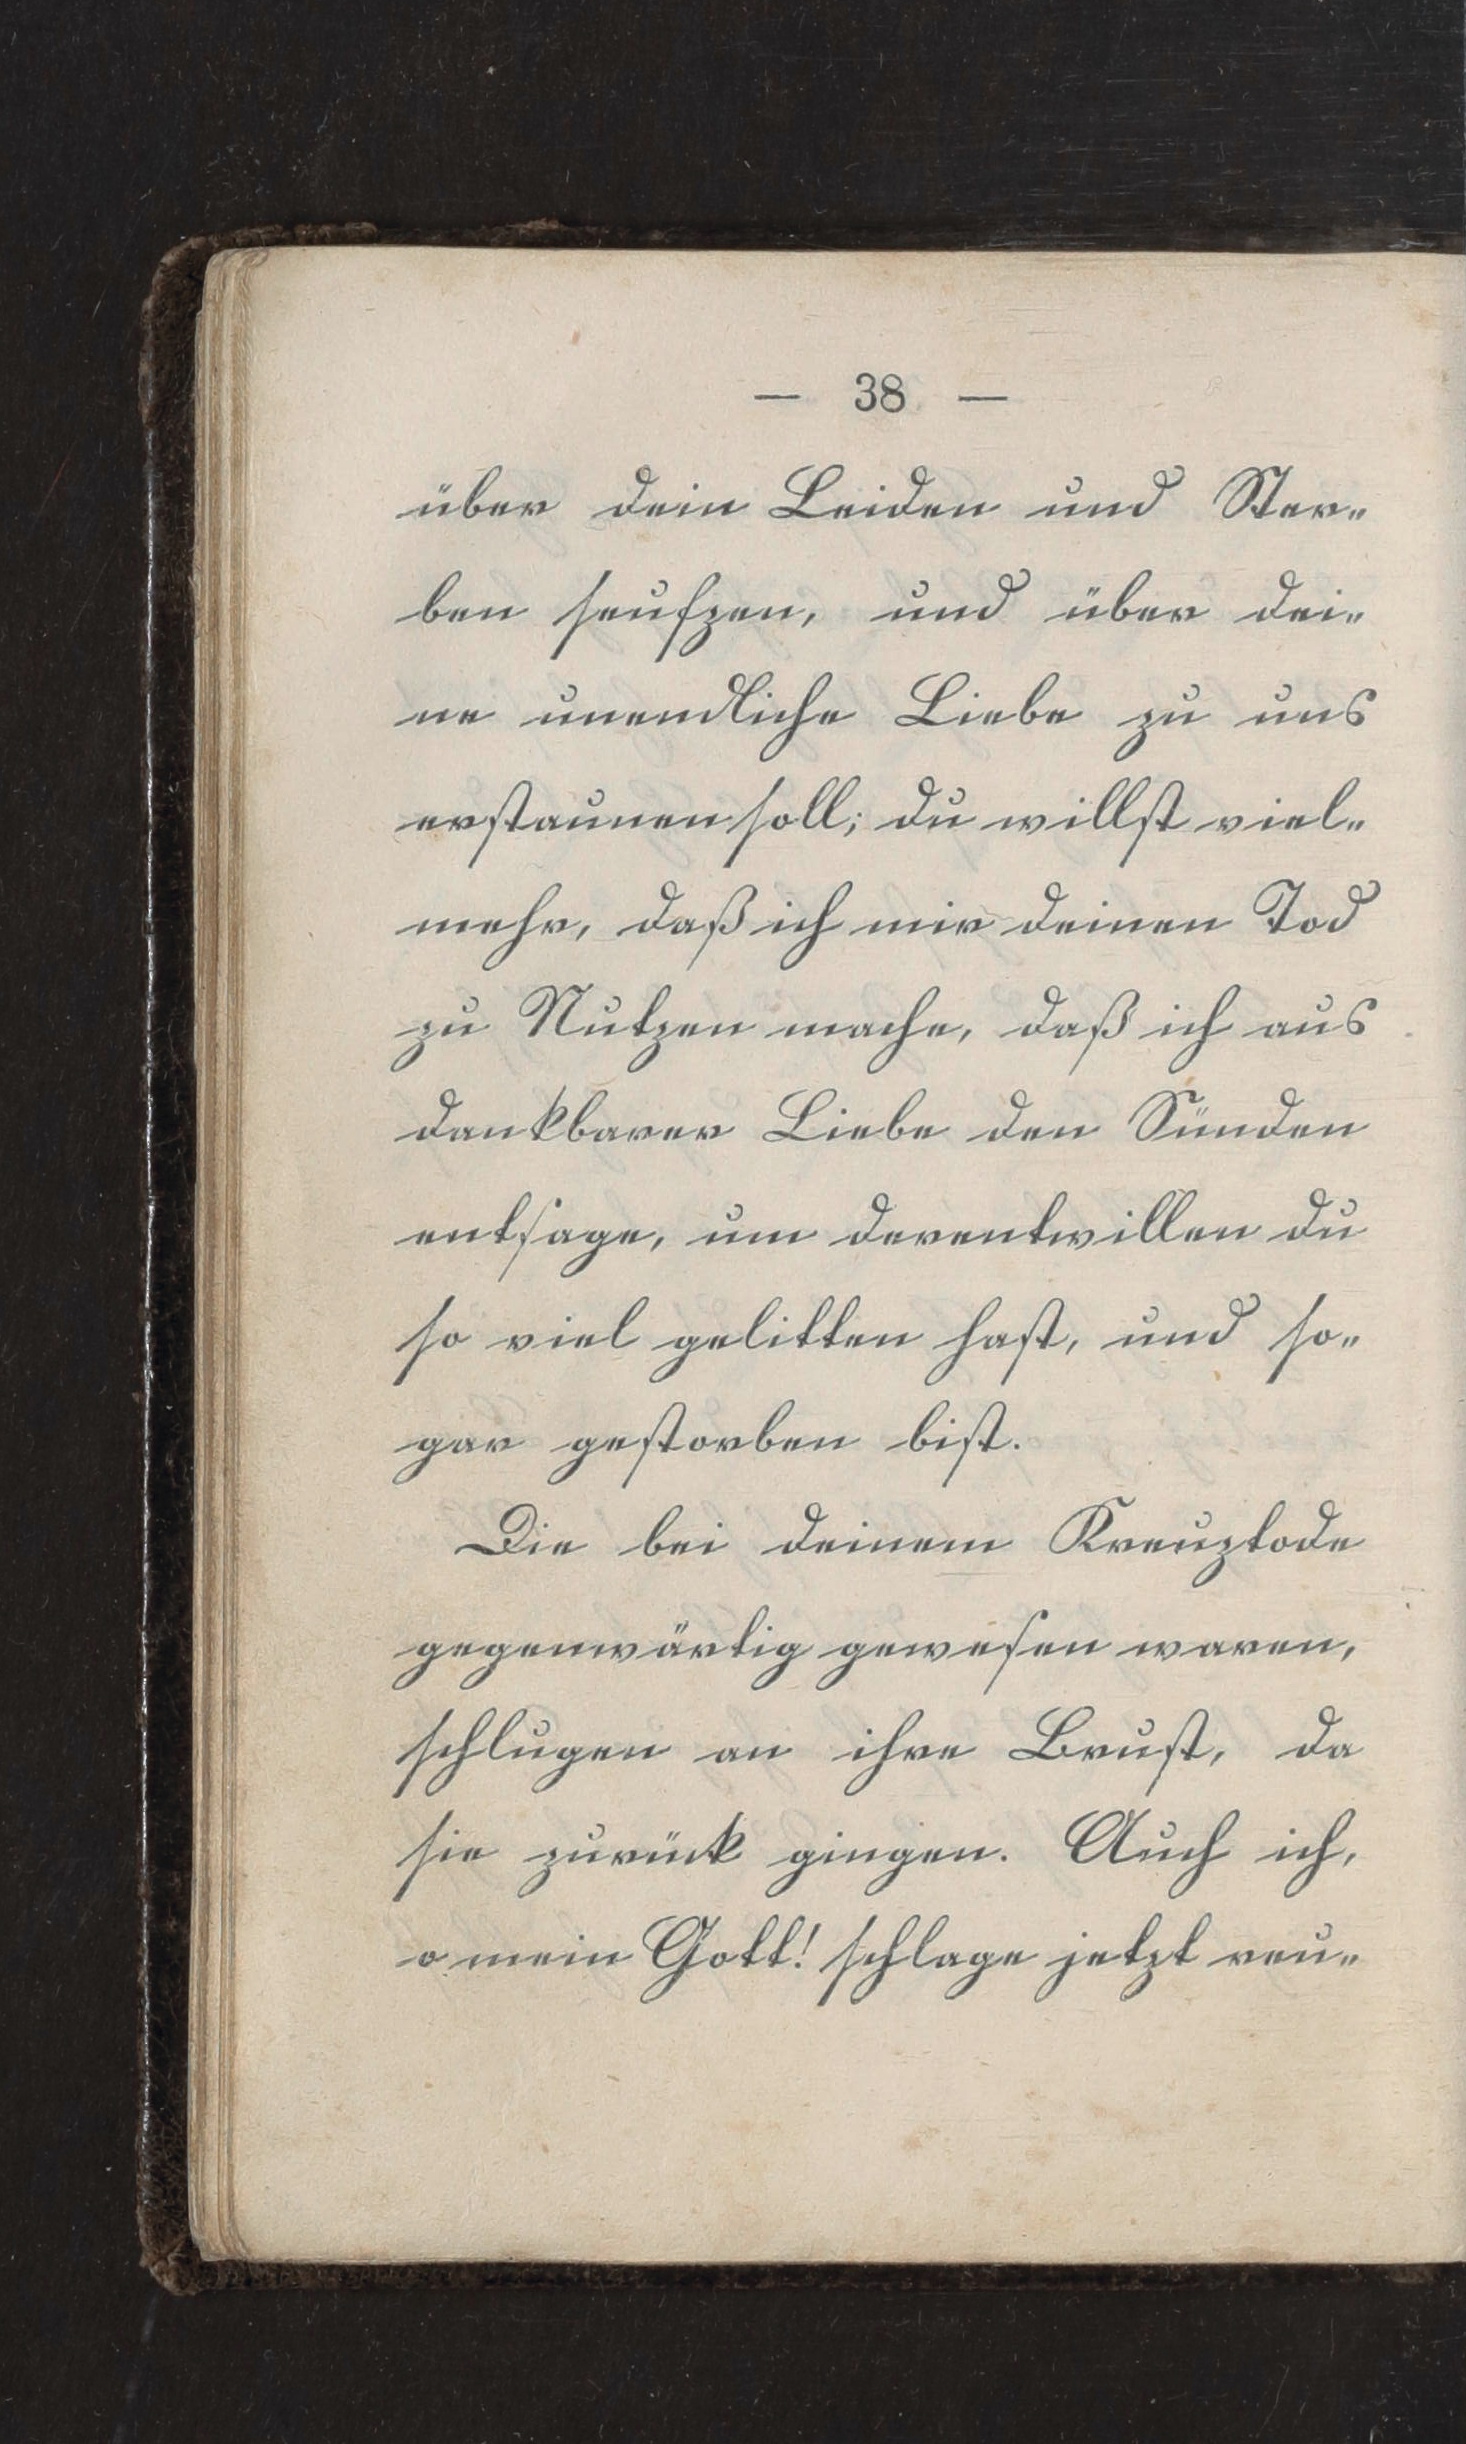 — 38 —
über dein Leiden und Ster-
ben seufzen, und über dei-
ne unendliche Liebe zu uns
erstaunen soll; du willst viel-
mehr, daß ich mir deinen Tod
zu Nutzen mache, daß ich aus
dankbarer Liebe den Sünden
entsage, um derentwillen du
so viel gelitten hast, und so-
gar gestorben bist.
Die bei deinem Kreuztode
gegenwärtig gewesen waren,
schlugen an ihre Brust, da
sie zurück gingen. Auch ich,
o mein Gott! schlage jetzt reu-